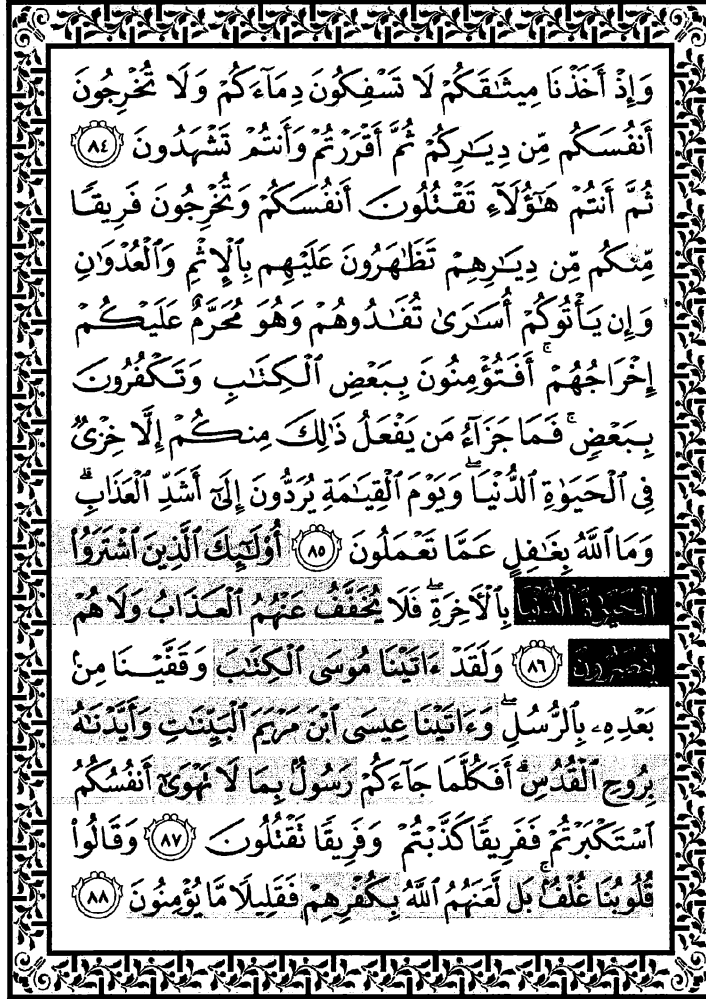 وَإِذْ أَخَذْنَا مِيثَٰقَكُمْ لَا تَسْفِكُونَ دِمَآءَكُمْ وَلَا تُخْرِجُونَ
أَنفُسَكُم مِّن دِيَٰرِكُمْ ثُمَّ أَقْرَرْتُمْ وَأَنتُمْ تَشْهَدُونَ ٨٤
ثُمَّ أَنتُمْ هَٰٓؤُلَآءِ تَقْتُلُونَ أَنفُسَكُمْ وَتُخْرِجُونَ فَرِيقًا
مِّنكُم مِّن دِيَٰرِهِمْ تَظَٰهَرُونَ عَلَيْهِم بِٱلْإِثْمِ وَٱلْعُدْوَٰنِ
وَإِن يَأْتُوكُمْ أُسَٰرَىٰ تُفَٰدُوهُمْ وَهُوَ مُحَرَّمٌ عَلَيْكُمْ
إِخْرَاجُهُمْ ۚ أَفَتُؤْمِنُونَ بِبَعْضِ ٱلْكِتَٰبِ وَتَكْفُرُونَ
بِبَعْضٍ ۚ فَمَا جَزَآءُ مَن يَفْعَلُ ذَٰلِكَ مِنكُمْ إِلَّا خِزْىٌ
فِى ٱلْحَيَوٰةِ ٱلدُّنْيَا ۖ وَيَوْمَ ٱلْقِيَٰمَةِ يُرَدُّونَ إِلَىٰٓ أَشَدِّ ٱلْعَذَابِ ۗ
وَمَا ٱللَّهُ بِغَٰفِلٍ عَمَّا تَعْمَلُونَ ٨٥ أُو۟لَٰٓئِكَ ٱلَّذِينَ ٱشْتَرَوُا۟
ٱلْحَيَوٰةَ ٱلدُّنْيَا بِٱلْءَاخِرَةِ ۖ فَلَا يُخَفَّفُ عَنْهُمُ ٱلْعَذَابُ وَلَا هُمْ
يُنصَرُونَ ٨٦ وَلَقَدْ ءَاتَيْنَا مُوسَى ٱلْكِتَٰبَ وَقَفَّيْنَا مِنۢ
بَعْدِهِۦ بِٱلرُّسُلِ ۖ وَءَاتَيْنَا عِيسَى ٱبْنَ مَرْيَمَ ٱلْبَيِّنَٰتِ وَأَيَّدْنَٰهُ
بِرُوحِ ٱلْقُدُسِ ۗ أَفَكُلَّمَا جَآءَكُمْ رَسُولٌۢ بِمَا لَا تَهْوَىٰٓ أَنفُسُكُمُ
ٱسْتَكْبَرْتُمْ فَفَرِيقًا كَذَّبْتُمْ وَفَرِيقًا تَقْتُلُونَ ٨٧ وَقَالُوا۟
قُلُوبُنَا غُلْفٌۢ ۚ بَل لَّعَنَهُمُ ٱللَّهُ بِكُفْرِهِمْ فَقَلِيلًا مَّا يُؤْمِنُونَ ٨٨